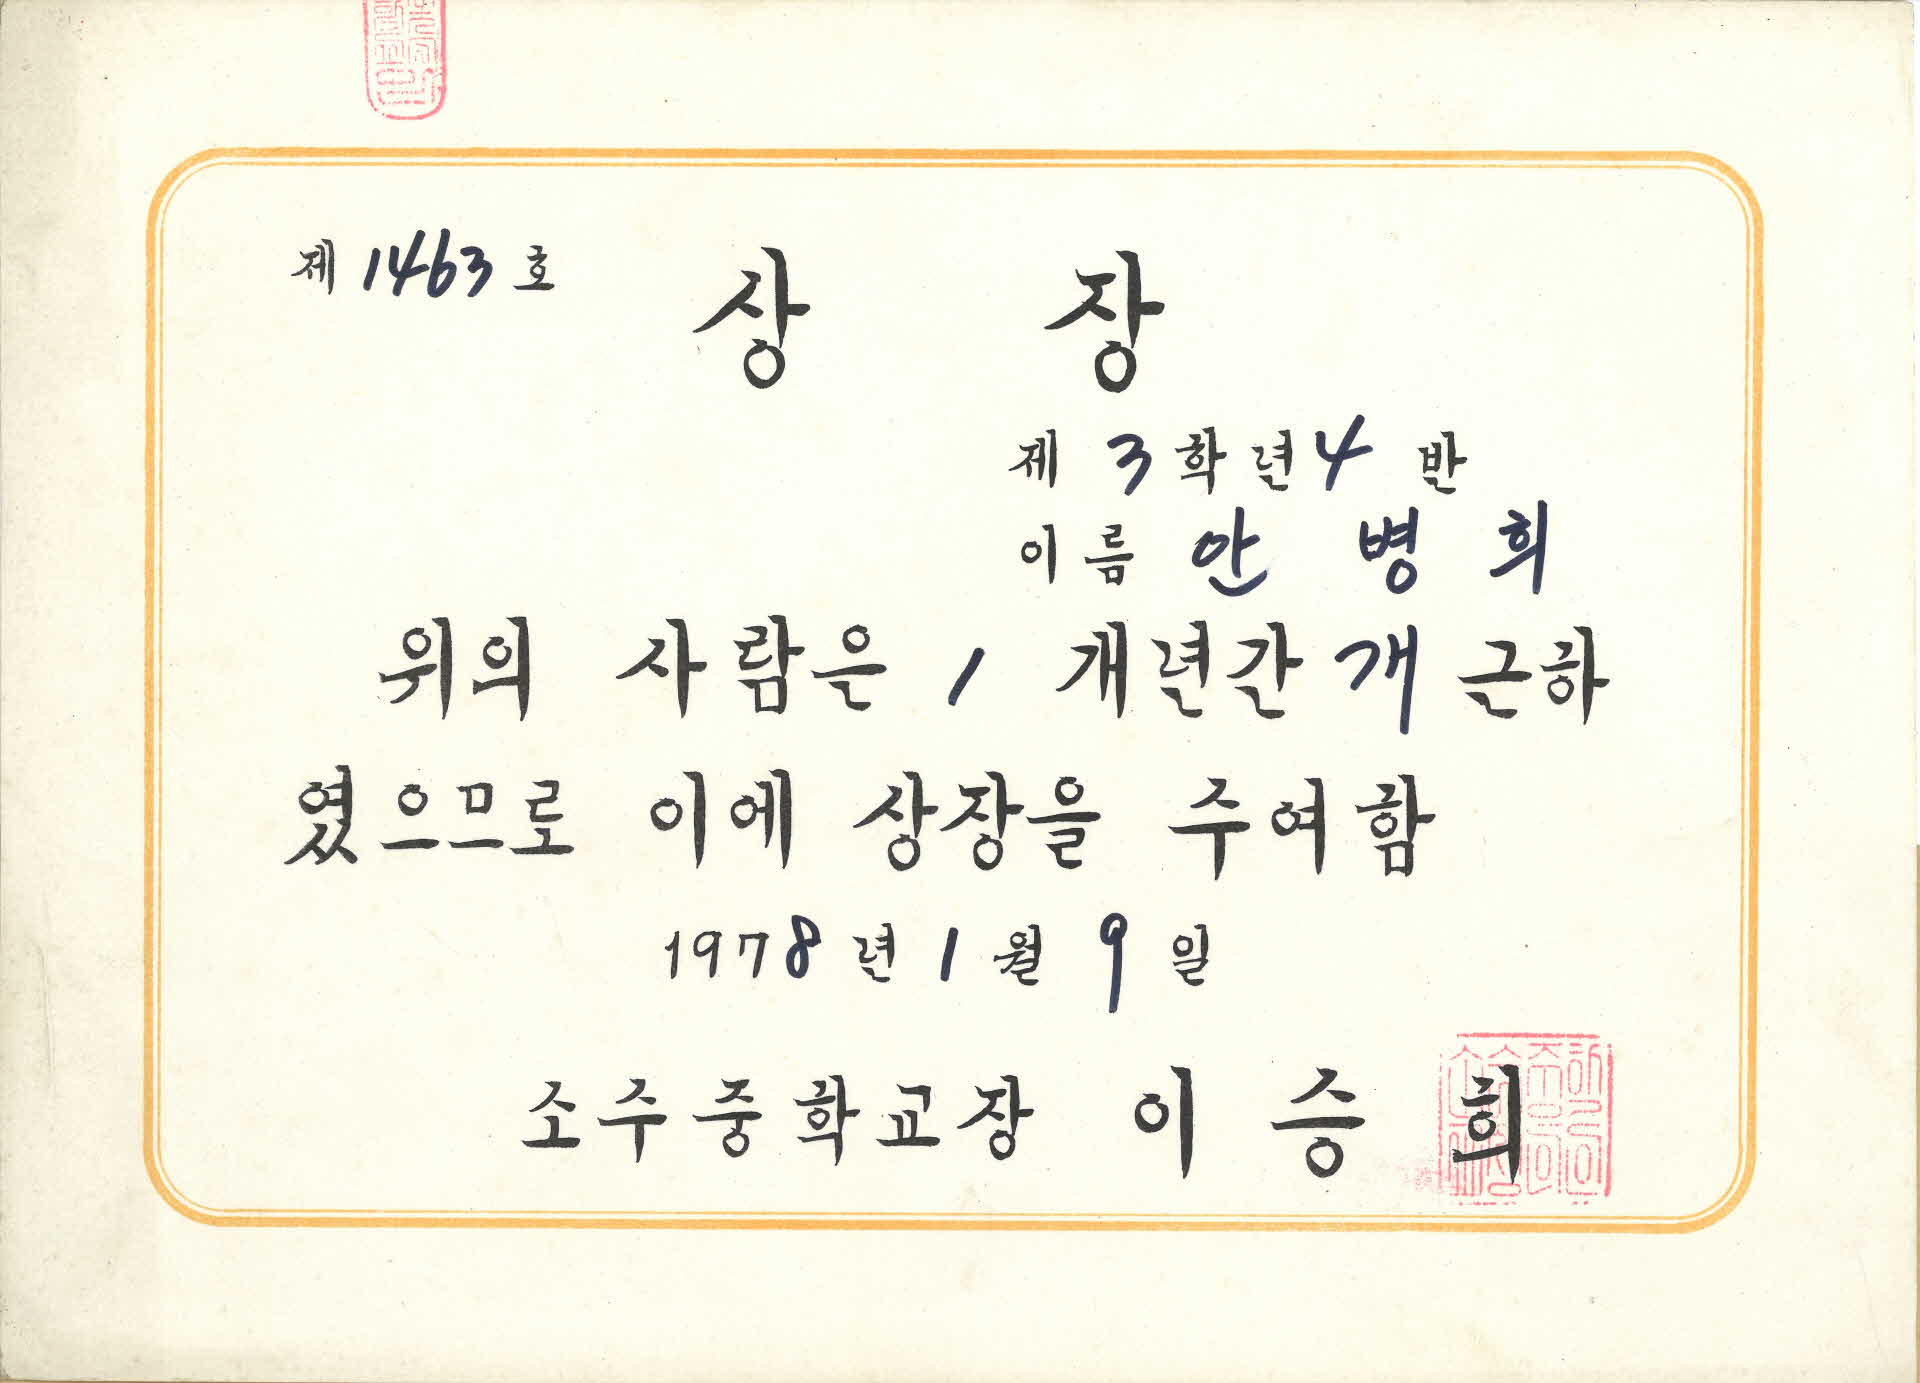 제 1463 호
상 장
제 3 학년 4 반
이름 안 병 희
위의 사람은 1 개년간 개근하
였으므로 이에 상장을 수여함
1978 년 1 월 9 일
소수중학교장 이 승 희